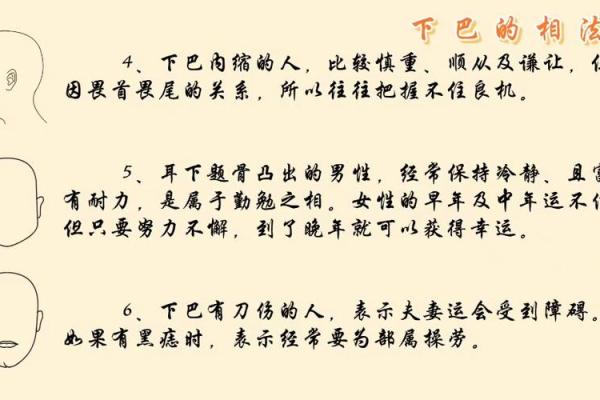 下巴的相法
4、下巴内缩的人，比较慎重、顺从及谦让，但
因畏首畏尾的关系，所以往往把握不住良机。
5、耳下题骨凸出的男性，经常保持冷静、且富
有耐力，是属于勤勉之相。女性的早年及中年运不佳
但只要努力不懈，到了晚年就可以获得幸运。
6、下巴有刀伤的人，表示夫妻运会受到障碍。
如果有黑痣时，表示经常要为部属操劳。